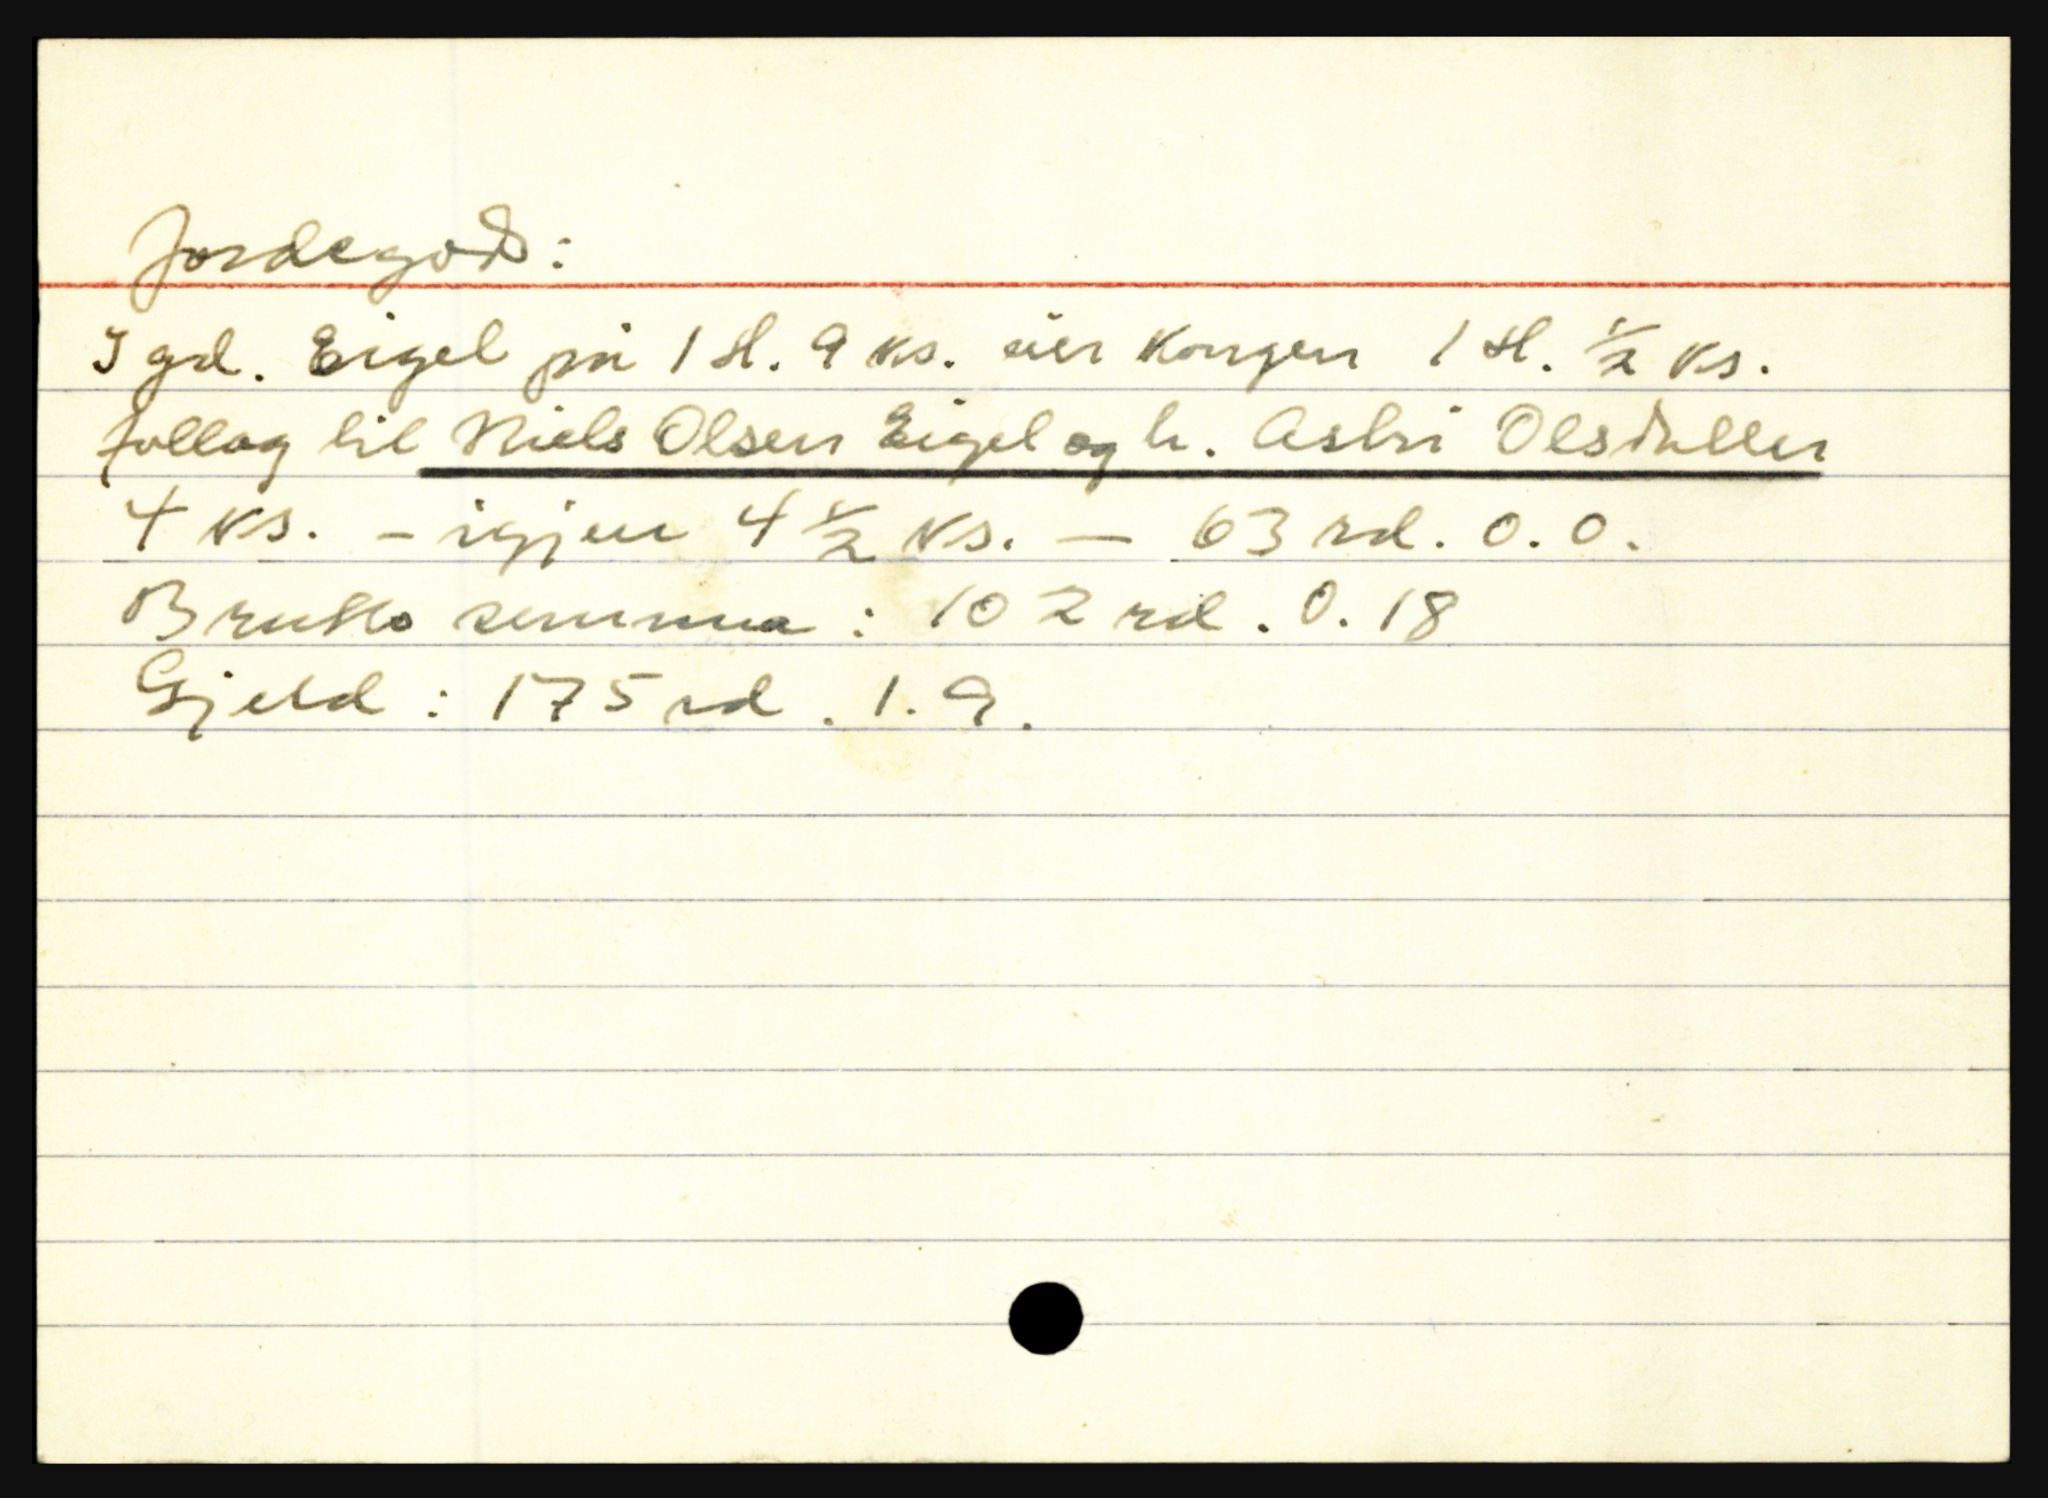 Jordegods:
I grd. Eigel på 1 H. 9 ks. eier Kongen 1 H. ½ ks.
follag til Niels Olsen Eigel og h. Astri Olsdatter
4 ks. - igjen 4 ½ ks. — 63 rd. 0. 0.
Brutto summa: 102 rd. 0. 18
Gjeld: 175 rd. 1. 9.